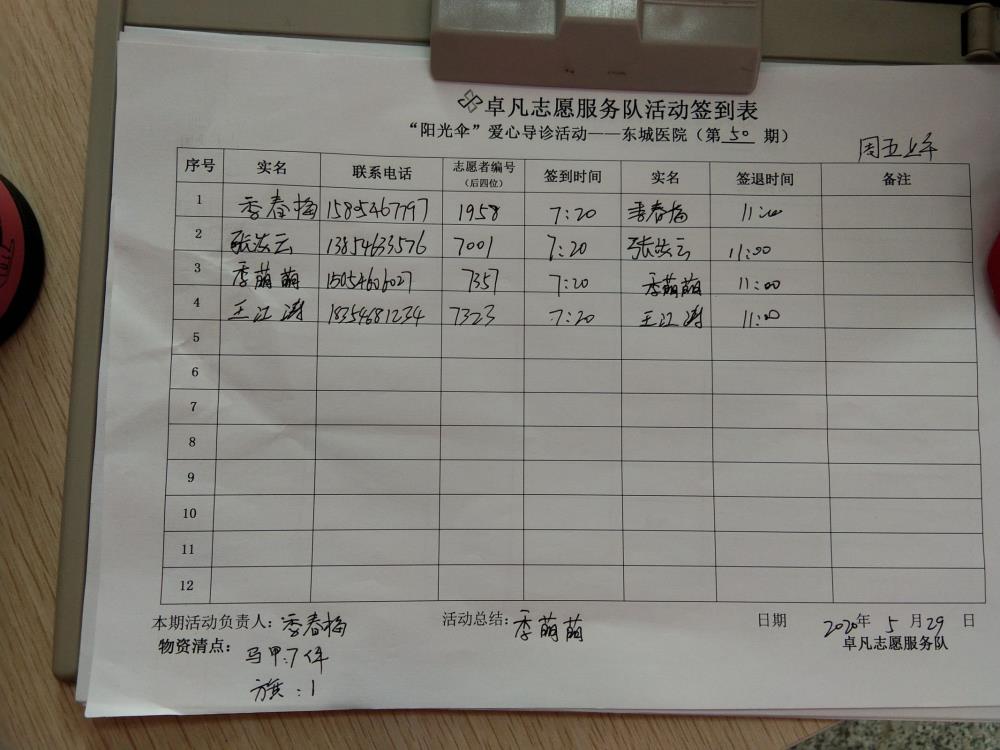 卓凡志愿服务队活动签到表
“阳光伞”爱心导诊活动——东城医院（第 50 期）
周五上午
序号 实名 联系电话 志愿者编号（后四位） 签到时间 实名 签退时间 备注
1 季春梅 1585467797 1958 7:20 季春梅 11:00
2 张法云 13854633576 7001 7:20 张法云 11:00
3 季萌萌 15054606027 7357 7:20 季萌萌 11:00
4 王江涛 18354681234 7323 7:20 王江涛 11:00
5
6
7
8
9
10
11
12
本期活动负责人：季春梅 活动总结：季萌萌 日期 2020年 5 月 29 日
物资清点：马甲:7件 卓凡志愿服务队
旗：1